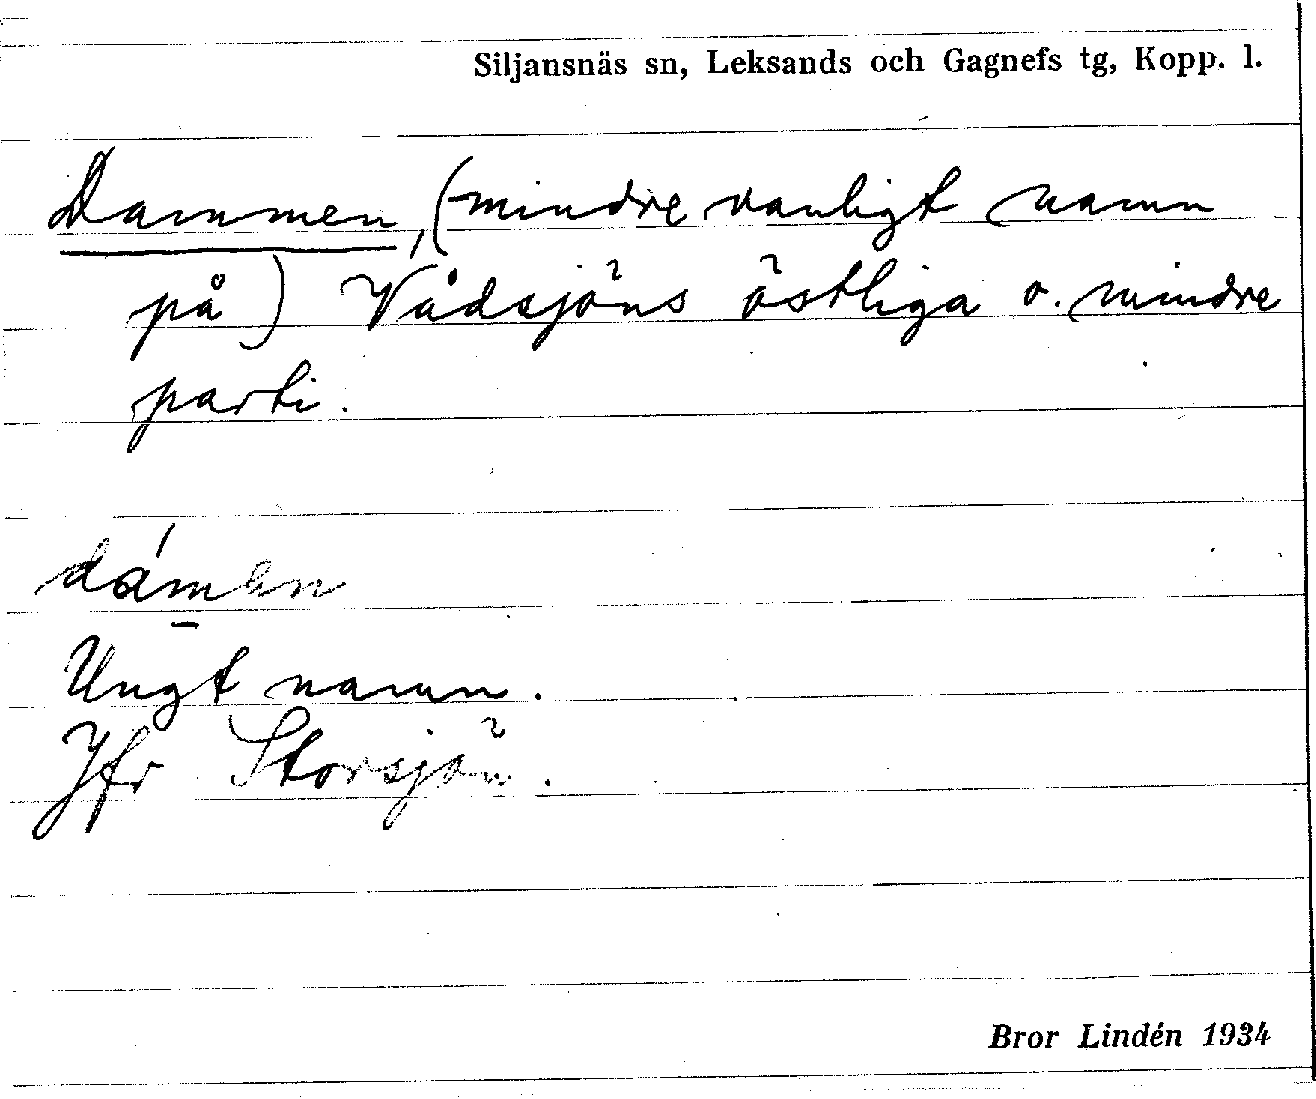 Siljansnäs sn, Leksands och Gagnefs tg, Kopp. l.
Dammen, (mindre vanligt namn
på) Vådsjöns östliga o. mindre
parti.
dámen
Ungt namn.
Jfr Storsjön.
Bror Lindén 1934